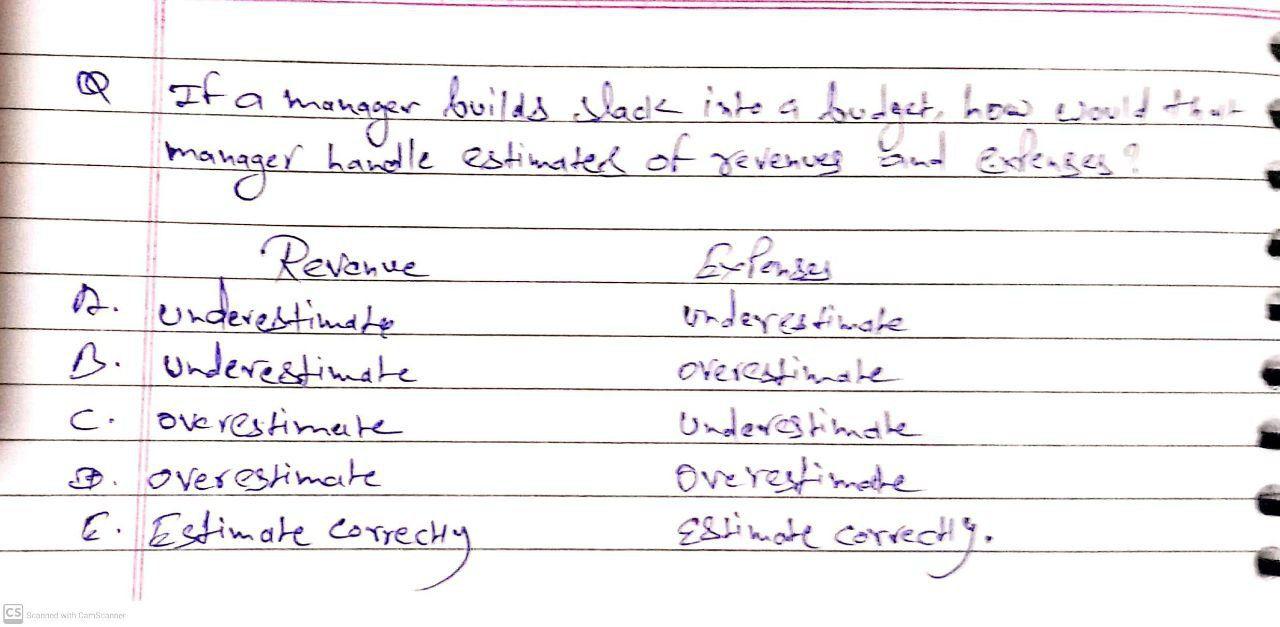 Q If a manager builds slack into a budget, how would that
manager handle estimated of revenues and expenses?
Revenue Expenses
A. underestimate underestimate
B. underestimate overestimate
C. overestimate underestimate
D. overestimate overestimate
E. Estimate correctly Estimate correctly.
CS Scanned with CamScanner